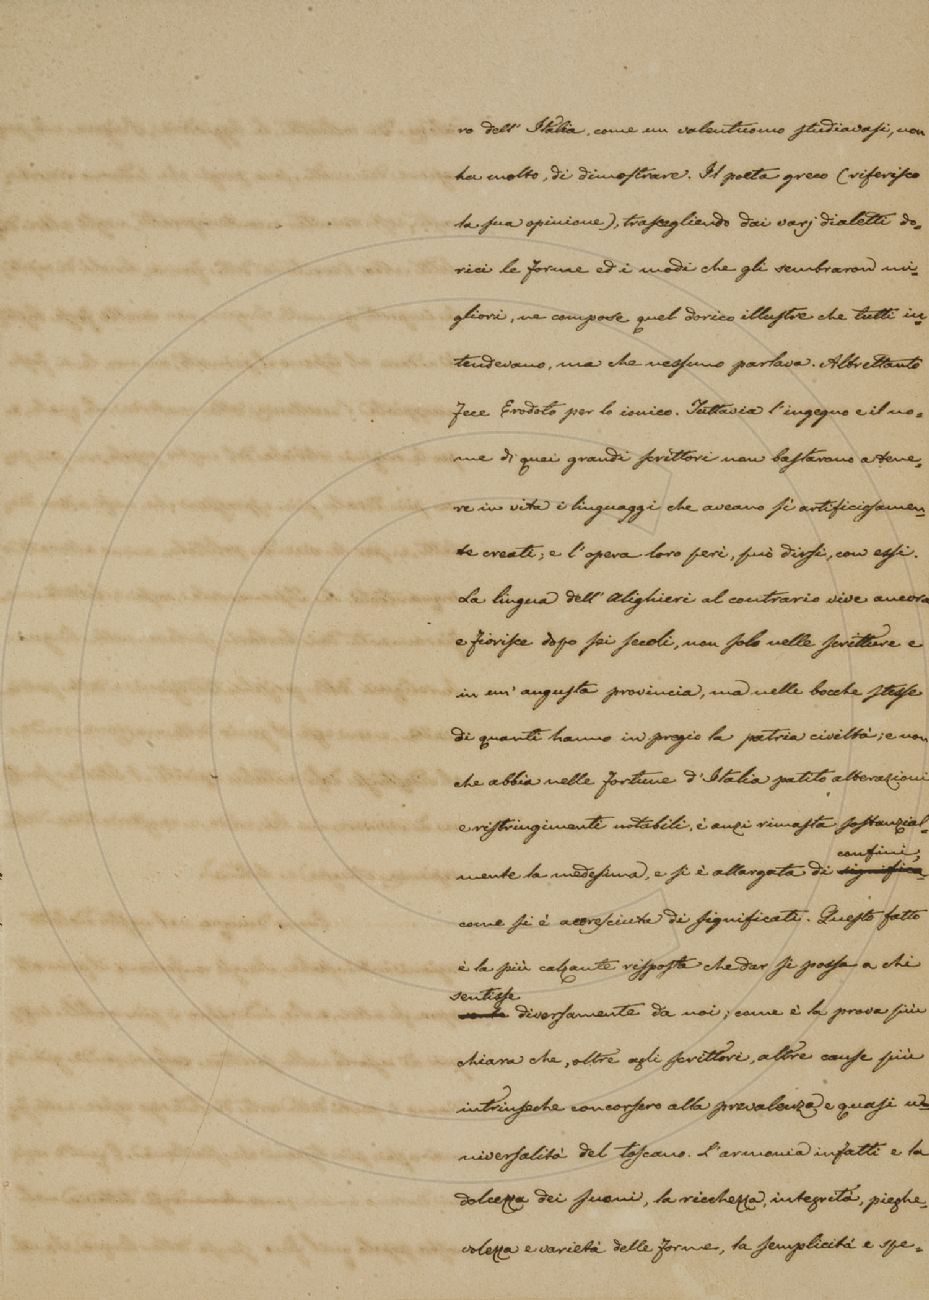 ro dell' Italia, come un valentuomo studiavasi, non
ha molto, di dimostrare. Il poeta greco (riferisco
la sua opinione), trascegliendo dai varj dialetti do-
rici le forme ed i modi che gli sembraron mi-
gliori, ne compose quel dorico illustre che tutti in-
tendevano, ma che nessuno parlava. Altrettanto
fece Erodoto per lo ionico. Tuttavia l'ingegno e il no-
me di quei grandi scrittori non bastarono a tene-
re in vita i linguaggi che aveano sì artificiosamen-
te creati; e l'opera loro perì, può dirsi, con essi.
La lingua dell' Alighieri al contrario vive ancora
e fiorisce dopo sei secoli, non solo nelle scritture e
in un' angusta provincia, ma nelle bocche stesse
di quanti hanno in pregio la patria civiltà; e non
che abbia nelle fortune d'Italia patito alterazioni
e ristringimenti notabili, è anzi rimasta sostanzial-
confini,
mente la medesima, e si è allargata di significa-
come si è accresciuta di significati. Questo fatto
è la più calzante risposta che dar si possa a chi
sentisse
sente diversamente da noi; come è la prova più
chiara che, oltre agli scrittori, altre cause più
intrinseche concorsero alla prevalenza e quasi u-
niversalità del toscano. L'armonia infatti e la
dolcezza dei suoni, la ricchezza, integrità, pieghe-
volezza e varietà delle forme, la semplicità e spe-